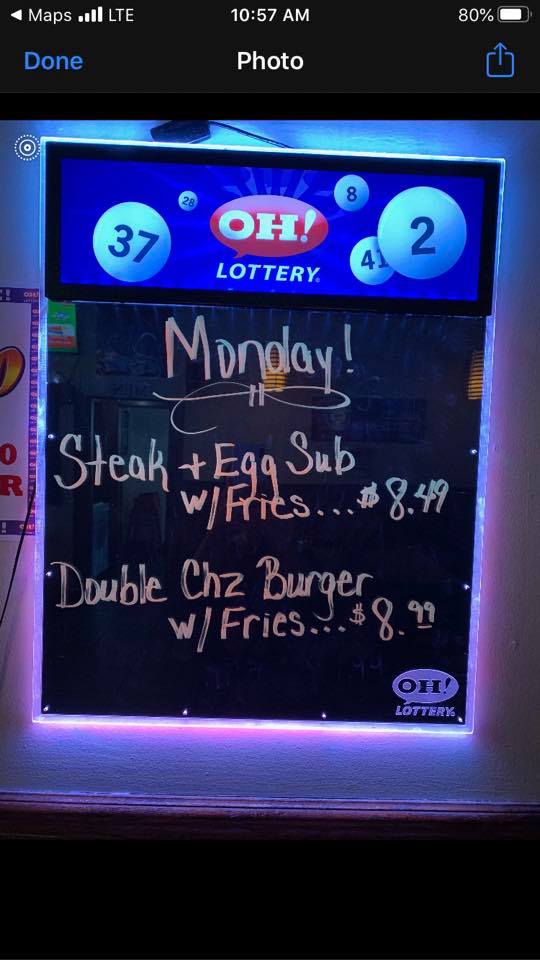 Maps LTE 10:57 AM 80%
Done Photo
37 28 OH! 8 41 2
LOTTERY
Monday!
Steak + Egg Sub
w/Fries...$8.49
Double Chz Burger
w/Fries...$8.99
OH!
LOTTERY